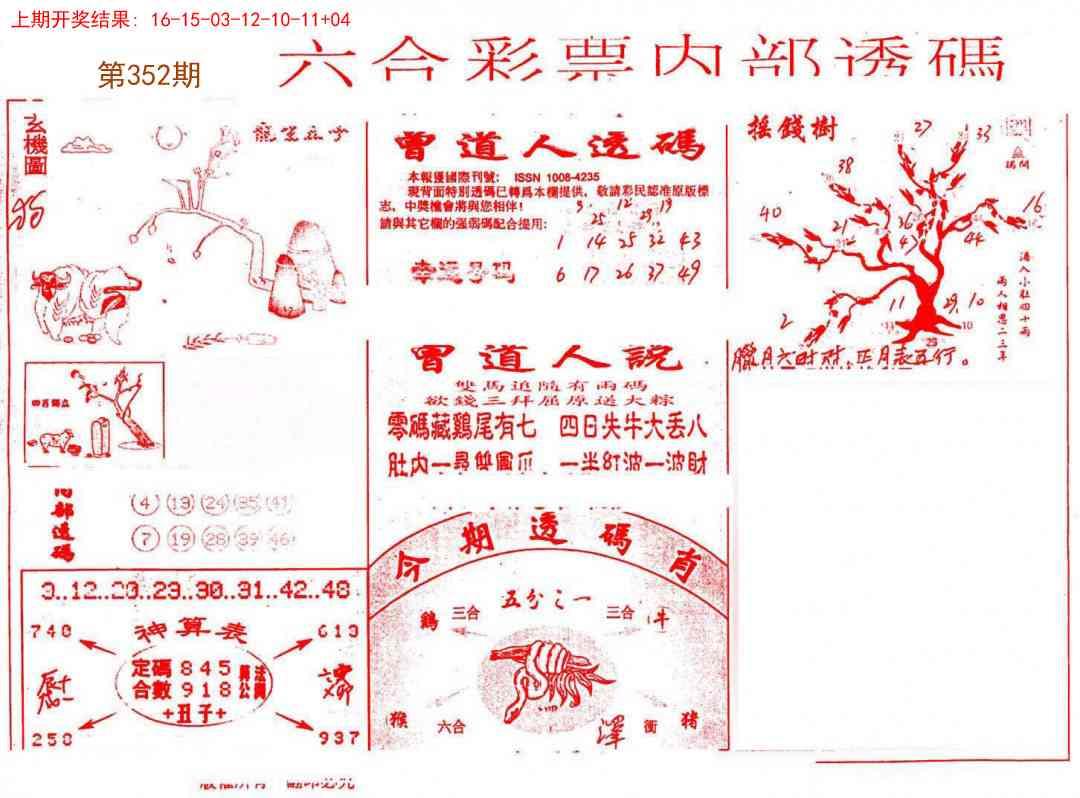 上期开奖结果: 16-15-03-12-10-11+04
六合彩票内部透碼
第352期
玄機圖
曾道人透碼
本報獲國際刊號: ISSN 1008-4235
現背面特別透碼已轉爲本欄提供，敬請彩民認准原版標
志，中獎機會將與您相伴!
9 12 19
25 29
請與其它欄的强弱碼配合提用:
1 14 25 32 43
幸運号码 6 17 26 37 49
摇錢樹
27
33
38
40
21
36
43
44
16
2
11
29
10
港人小肚四十兩
兩人相思二三年
臘月六
曾道人説
雙馬追隨有兩碼
欲錢三拜屈原送大粽
零碼藏鷄尾有七 四日失牛大丢八
肚内一尋雙圓瓜 一半紅波一波財
内部透碼
4 13 24 35 41
7 19 28 39 46
3..12..20..23..30..31..42..48
神算表
740
613
定碼 845
合數 918
+丑子+
258
937
今期透碼肖
五分之一
鷄 三合
三合 牛
猴 六合
衝 猪